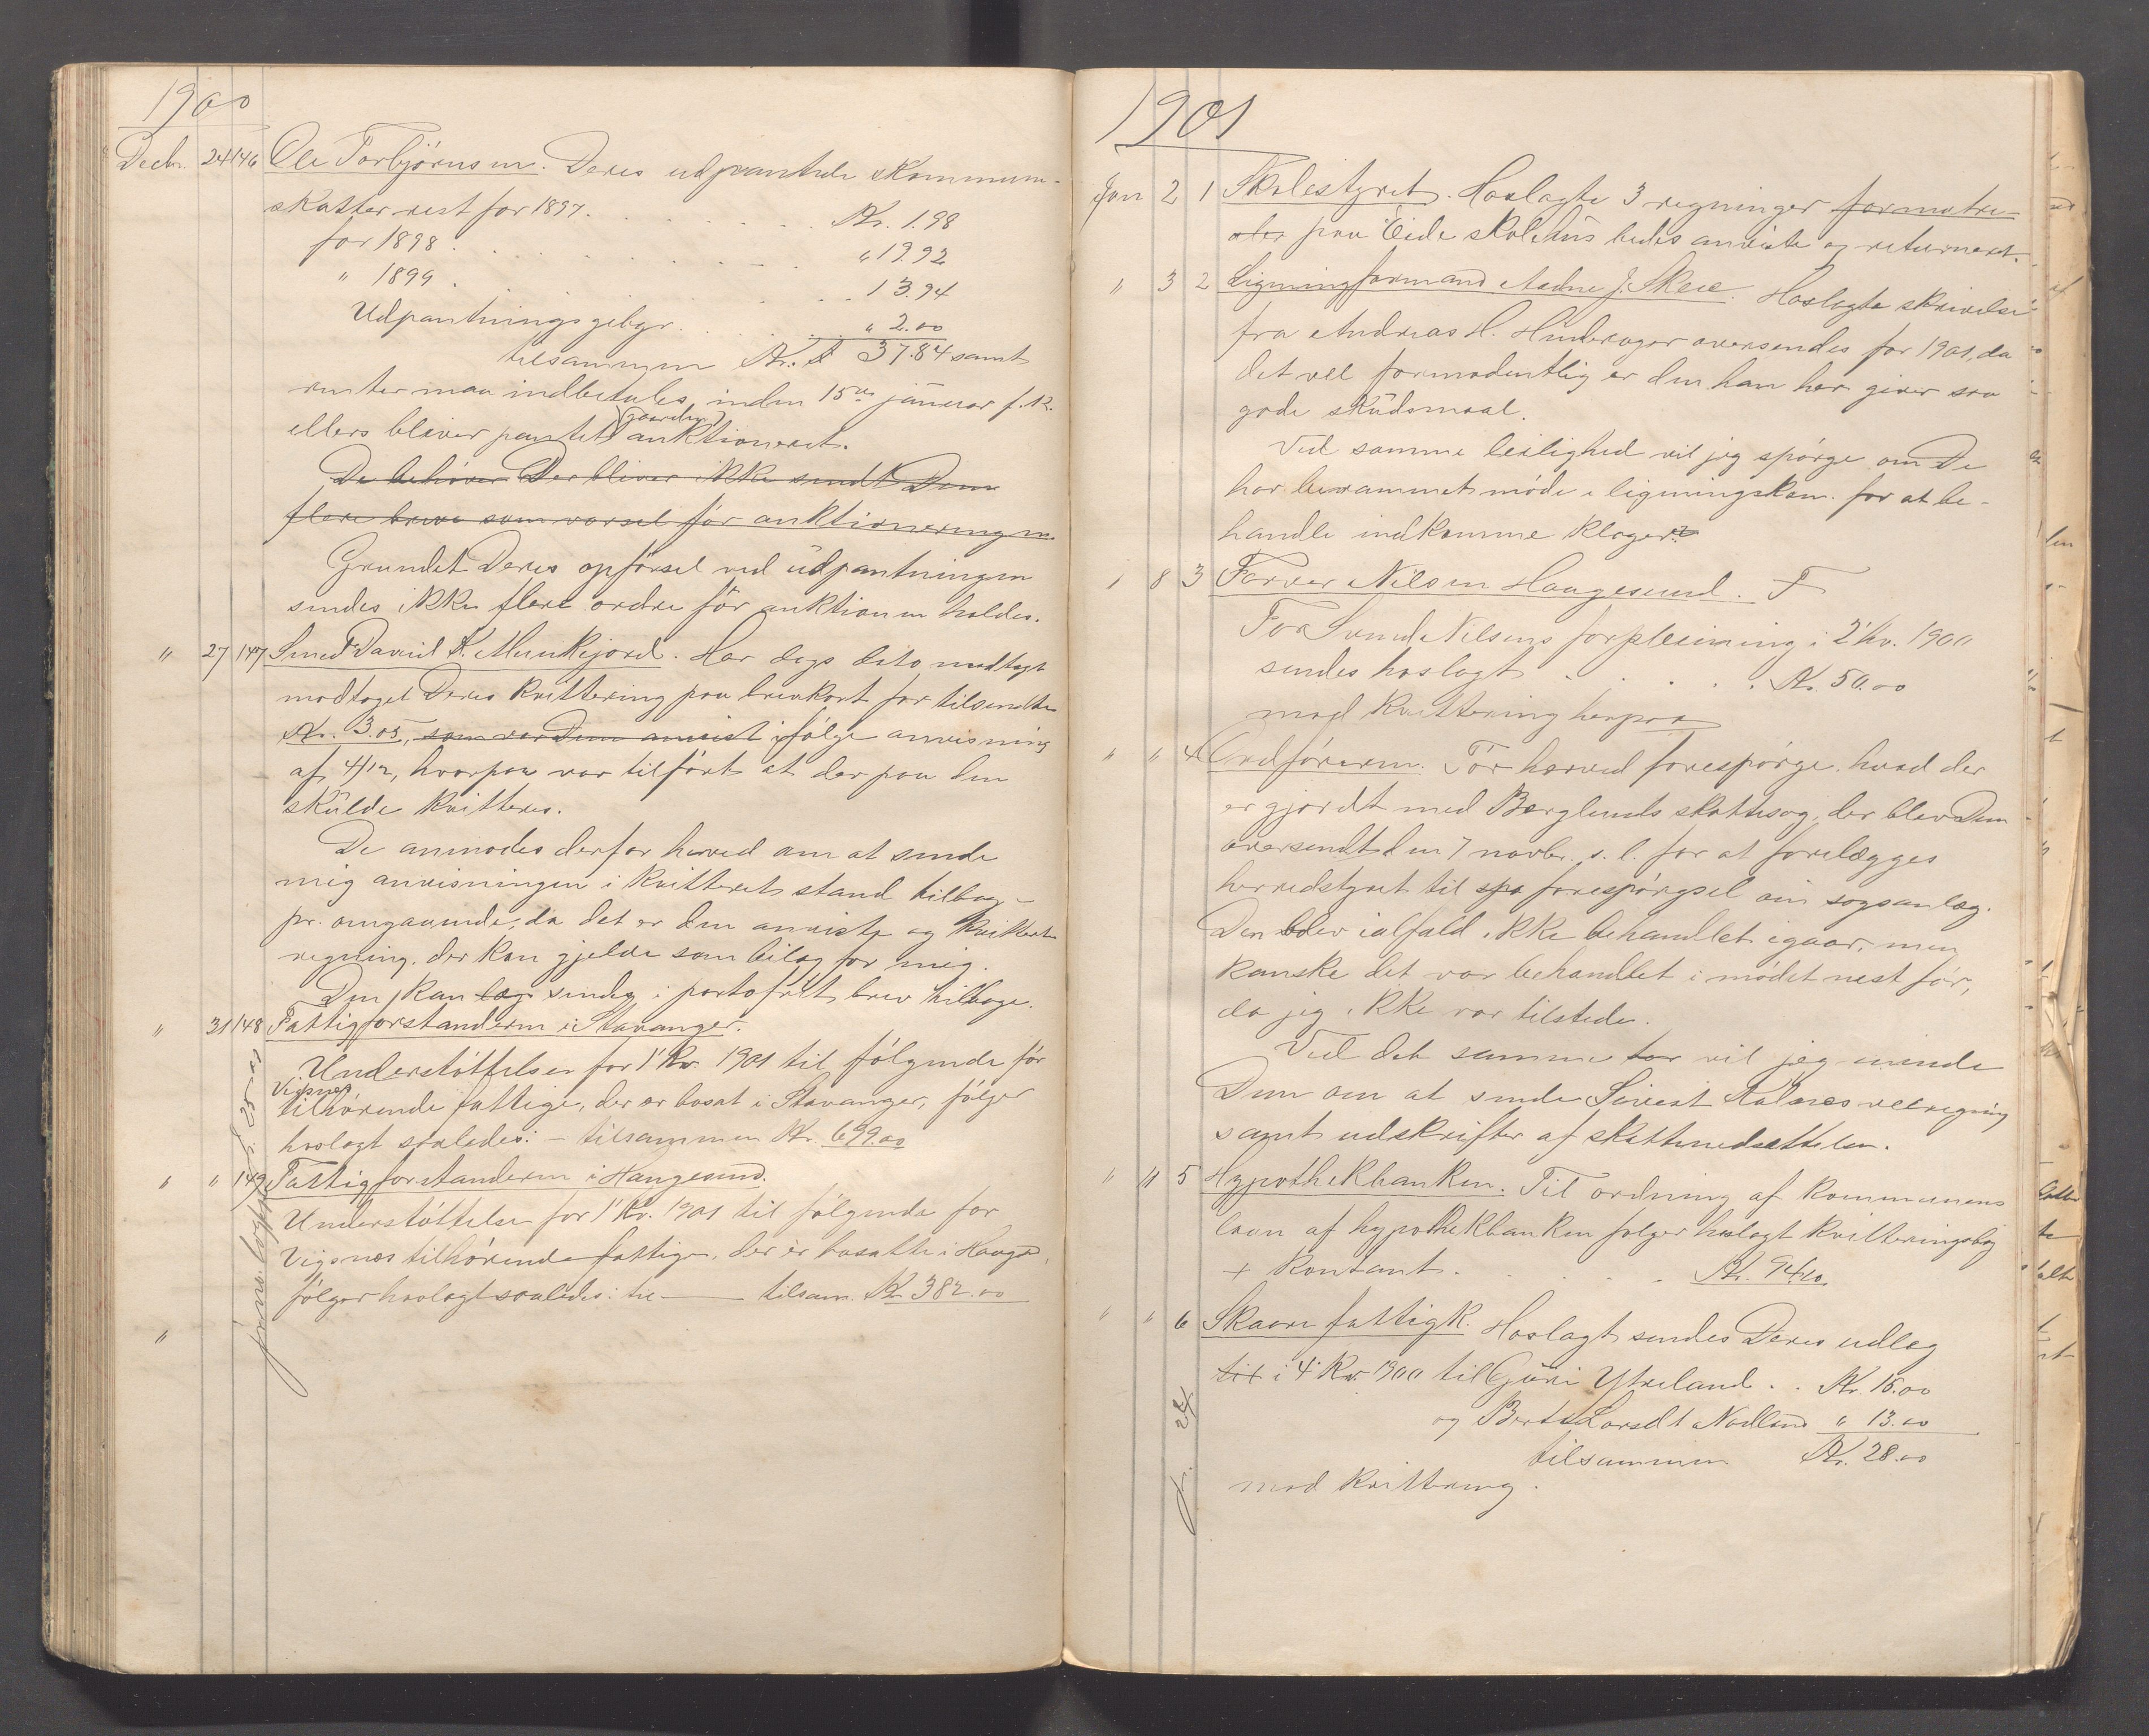 1900
Decbr. 24 146 Ole Torbjørnsen. Deres udpantede kommune-
skatter rest for 1897. Kr. 1.98
for 1898. " 19.92
" 1899. 13.94
Udpantningsgebyr. " 2.00
tilsammen Kr. 37.84 samt
renter maa indbetales inden 15de januar f. k.
ellers bliver pantet (gaarden) auktioneret.
De behøver Der bliver ikke sendt Dem
flere breve som varsel før auktioneringen
Grundet Deres opførsel ved udpantningen
sendes ikke flere ordre før auktionen holdes.
" 27 147 Smed David K. Munkejord. Har dags dito modtagt
modtaget Deres kvittering paa brevkort for tilsendte
Kr. 3.05, som var Dem anvist ifølge anvisning
af 4/12, hvorpaa var tilført at der paa den
skulde kvitteres.
De anmodes derfor herved om at sende
mig anvisningen i kvitteret stand tilbage
pr. omgaaende, da det er den anviste og kvitterte
regning, der kan gjelde som bilag for mig.
Den kan læg sendes i portofrit brev tilbage.
" 31 148 Fattigforstanderen i Stavanger.
Understøttelser for 1' kv. 1901 til følgende for
Vigsnes
tilhørende fattige, der er bosat i Stavanger, følger
hoslagt saaledes: – tilsammen Kr. 699.00
" " 149 Fattigforstanderen i Haugesund.
Understøttelse for 1' kv. 1901 til følgende for
Vigsnes tilhørende fattige, der er bosatte i Haugsd,
følger hoslagt saaledes: tilsam. Kr. 382.00
"
1901
Jan 2 1 Skolestyret. Hoslagte 3 regninger for matri-
aler paa Eide skolehus bedes anviste og returneret.
" 3 2 Ligningsformand Aadne J. Skeie. Hoslagte skrivelse
fra Andreas H. Hinderager oversendes for 1901, da
det vel formodentlig er den han her giver saa
gode skudsmaal.
Ved samme leilighed vil jeg spørge om De
har berammet møde i ligningskom. for at be-
handle indkomme klager?
" 8 3 Farver Nilsen Haugesund.
For Svend Nilsens forpleining i 2' hv. 1900
sendes hoslagt Kr. 50.00
mod kvittering herpaa
" " 4 Ordføreren. Tør herved forespørge, hvad der
er gjordt med Berglunds skattesag, der blev Dem
oversendt den 7 novbr. s. l. for at forelægges
herredstyret til spø forespørgsel om sogsanlæg.
Den blev ialfald ikke behandlet igaar, men
kanske det var behandlet i mødet nest før,
da jeg ikke var tilstede.
Ved det samme tør vil jeg minde
Dem om at sende Sivert Kalnes veeregning
samt udskrifter af skattenedsettelsen.
" 11 5 Hypothekbanken. Til ordning af kommunens
laan af hypothekbanken følger hoslagt kvitteringsbog
+ kontant. Kr. 94.10.
" " 6 Skaare fattigk. Hoslagt sendes Deres udlæg
til i 4' kv. 1900 til Guri Ytreland. Kr. 15.00
og Berta Larsdt Nodland " 13.00
tilsammen Kr. 28.00
mod kvittering.